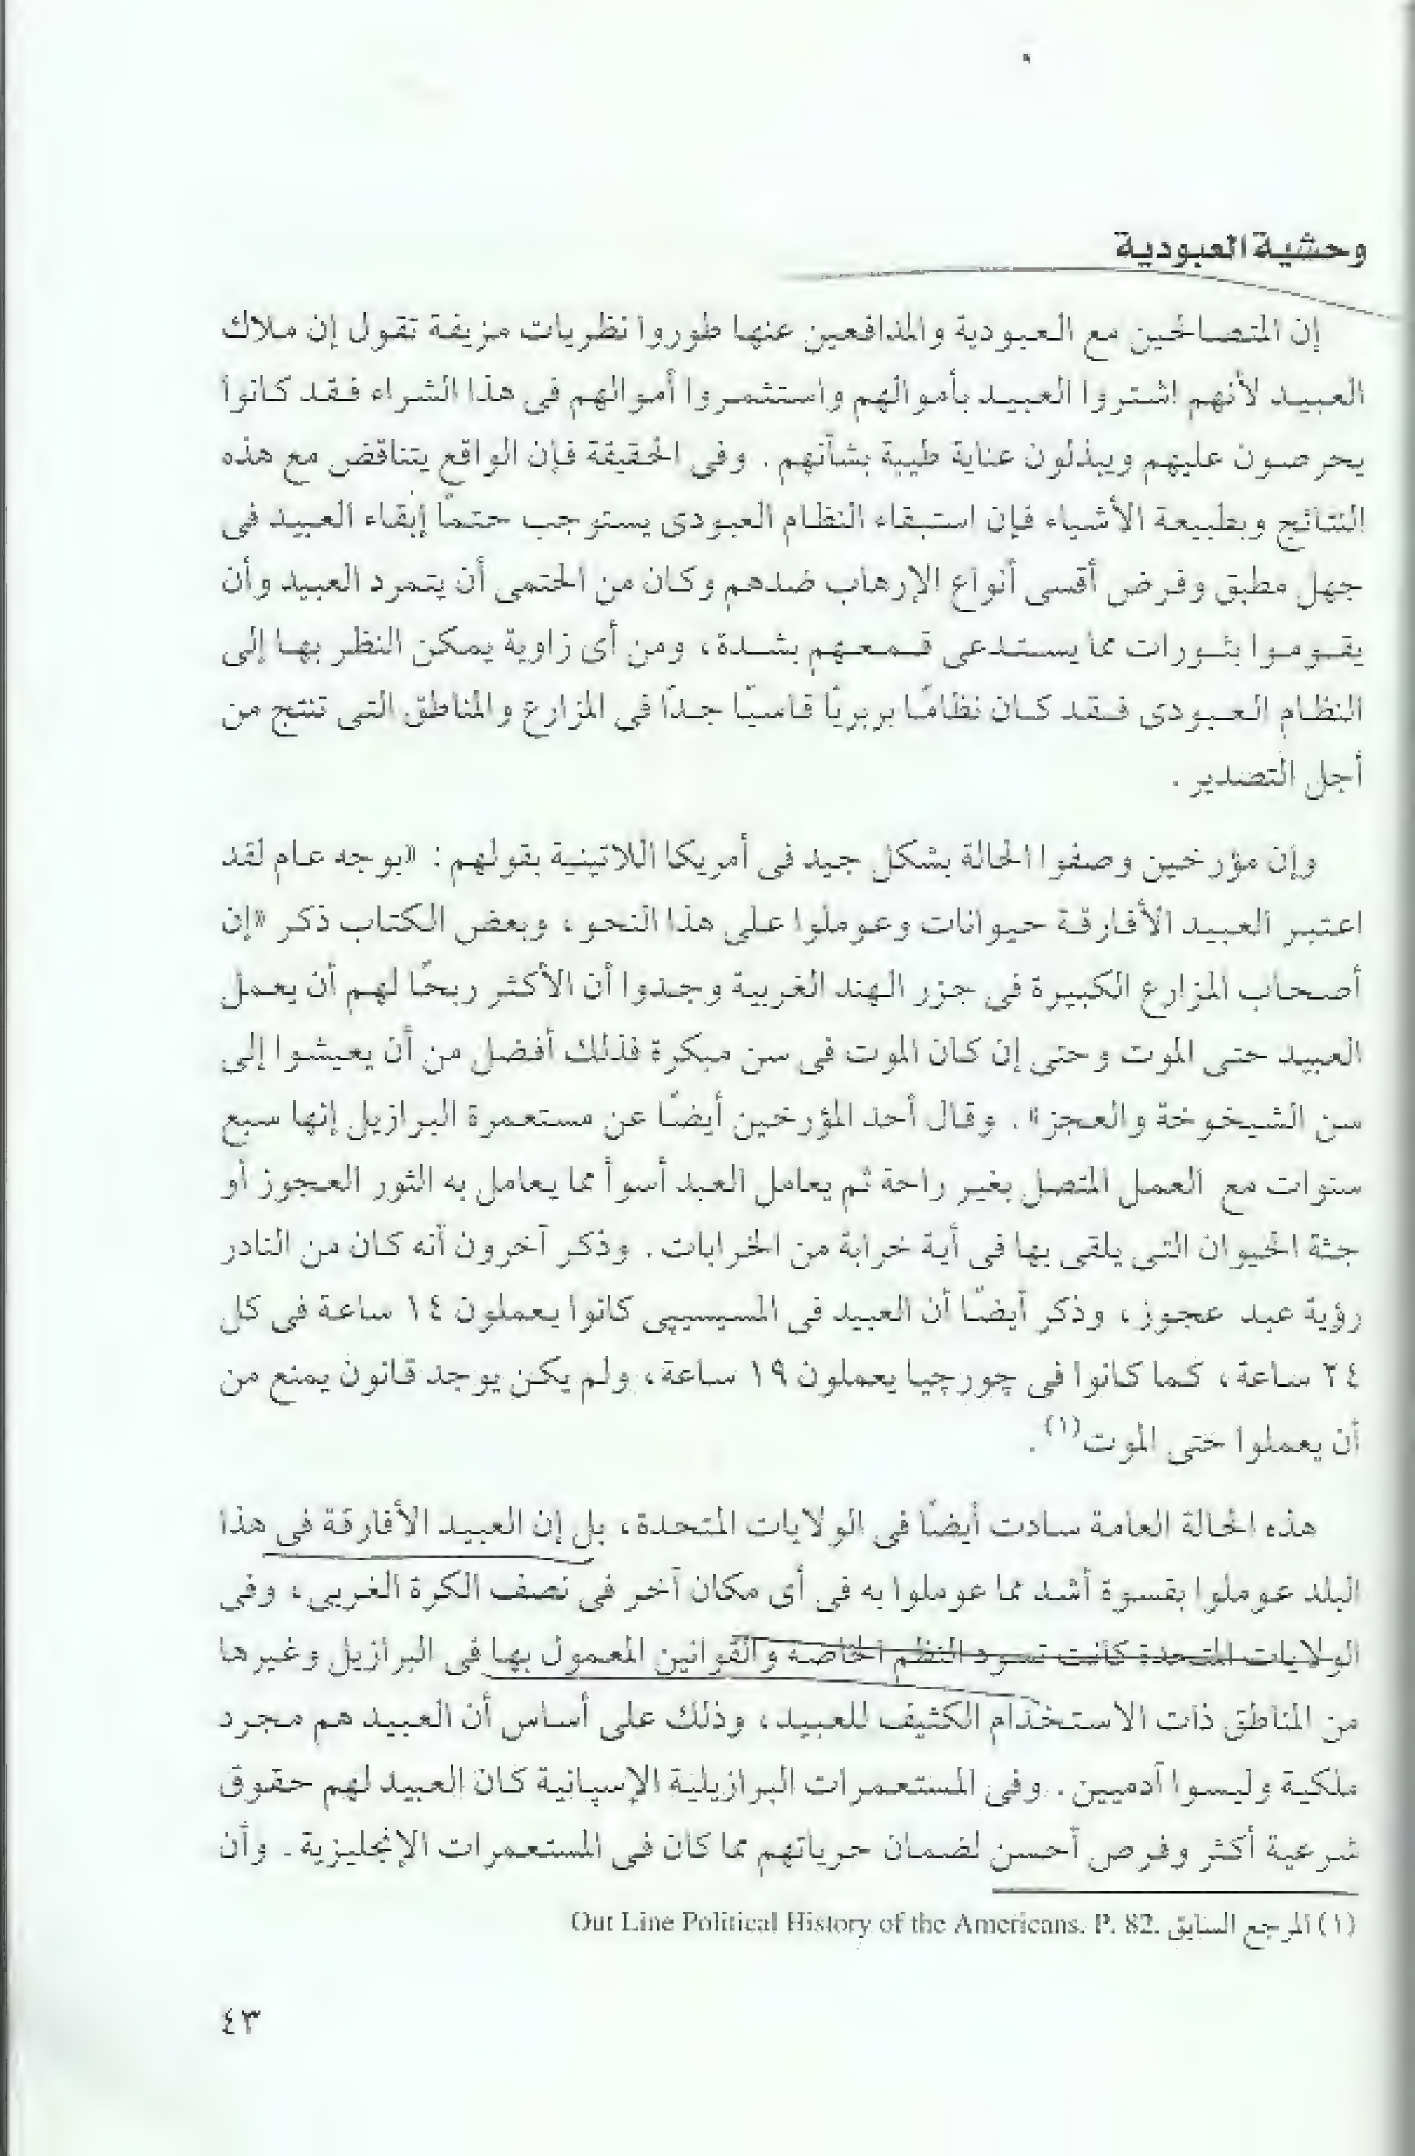 وحشية العبودية
إن المتصالحين مع العبودية والمدافعين عنها طوروا نظريات مزيفة تقول إن ملاك
العبيد لأنهم اشتروا العبيد بأموالهم واستثمروا أموالهم فى هذا الشراء فقد كانوا
يحرصون عليهم ويبذلون عناية طيبة بشأنهم . وفى الحقيقة فإن الواقع يتناقض مع هذه
النتائج وبطبيعة الأشياء فإن استبقاء النظام العبودى يستوجب حتمًا إبقاء العبيد فى
جهل مطبق وفرض أقسى أنواع الإرهاب ضدهم وكان من الحتمى أن يتمرد العبيد وأن
يقوموا بثورات مما يستدعى قمعهم بشدة، ومن أى زاوية يمكن النظر بها إلى
النظام العبودى فقد كان نظامًا بربريًا قاسيًا جدًا فى المزارع والمناطق التى تنتج من
أجل التصدير .
وإن مؤرخين وصفوا الحالة بشكل جيد فى أمريكا اللاتينية بقولهم : «بوجه عام لقد
اعتبر العبيد الأفارقة حيوانات وعوملوا على هذا النحو، وبعض الكتاب ذكر «إن
أصحاب المزارع الكبيرة فى جزر الهند الغربية وجدوا أن الأكثر ربحًا لهم أن يعمل
العبيد حتى الموت وحتى إن كان الموت فى سن مبكرة فذلك أفضل من أن يعيشوا إلى
سن الشيخوخة والعجز» . وقال أحد المؤرخين أيضًا عن مستعمرة البرازيل إنها سبع
سنوات مع العمل المتصل بغير راحة ثم يعامل العبد أسوأ مما يعامل به الثور العجوز أو
جثة الحيوان التى يلقى بها فى أية خرابة من الخرابات . وذكر آخرون أنه كان من النادر
رؤية عبد عجوز، وذكر أيضًا أن العبيد فى المسيسيپى كانوا يعملون ١٤ ساعة فى كل
٢٤ ساعة، كما كانوا فى چورچيا يعملون ١٩ ساعة، ولم يكن يوجد قانون يمنع من
أن يعملوا حتى الموت(١) .
هذه الحالة العامة سادت أيضًا فى الولايات المتحدة، بل إن العبيد الأفارقة فى هذا
البلد عوملوا بقسوة أشد مما عوملوا به فى أى مكان آخر فى نصف الكرة الغربى، وفى
الولايات المتحدة كانت تسود النظم الخاصة والقوانين المعمول بها فى البرازيل وغيرها
من المناطق ذات الاستخدام الكثيف للعبيد، وذلك على أساس أن العبيد هم مجرد
ملكية وليسوا آدميين . وفى المستعمرات البرازيلية الإسپانية كان العبيد لهم حقوق
شرعية أكثر وفرص أحسن لضمان حرياتهم مما كان فى المستعمرات الإنجليزية . وأن
(١) المرجع السابق .Out Line Political History of the Americans. P. 82
٤٣